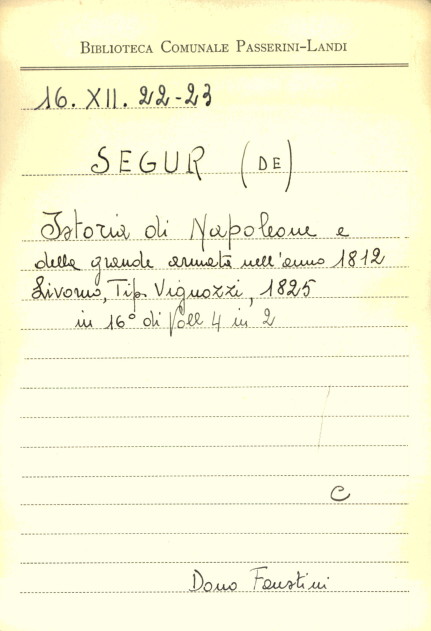 BIBLIOTECA COMUNALE PASSERINI-LANDI
16. XII. 22-23
SEGUR (DE)
Istoria di Napoleone e
della grande armata nell'anno 1812
Livorno, Tip. Vignozzi, 1825
in 16° di Voll 4 in 2
C
Dono Faustini